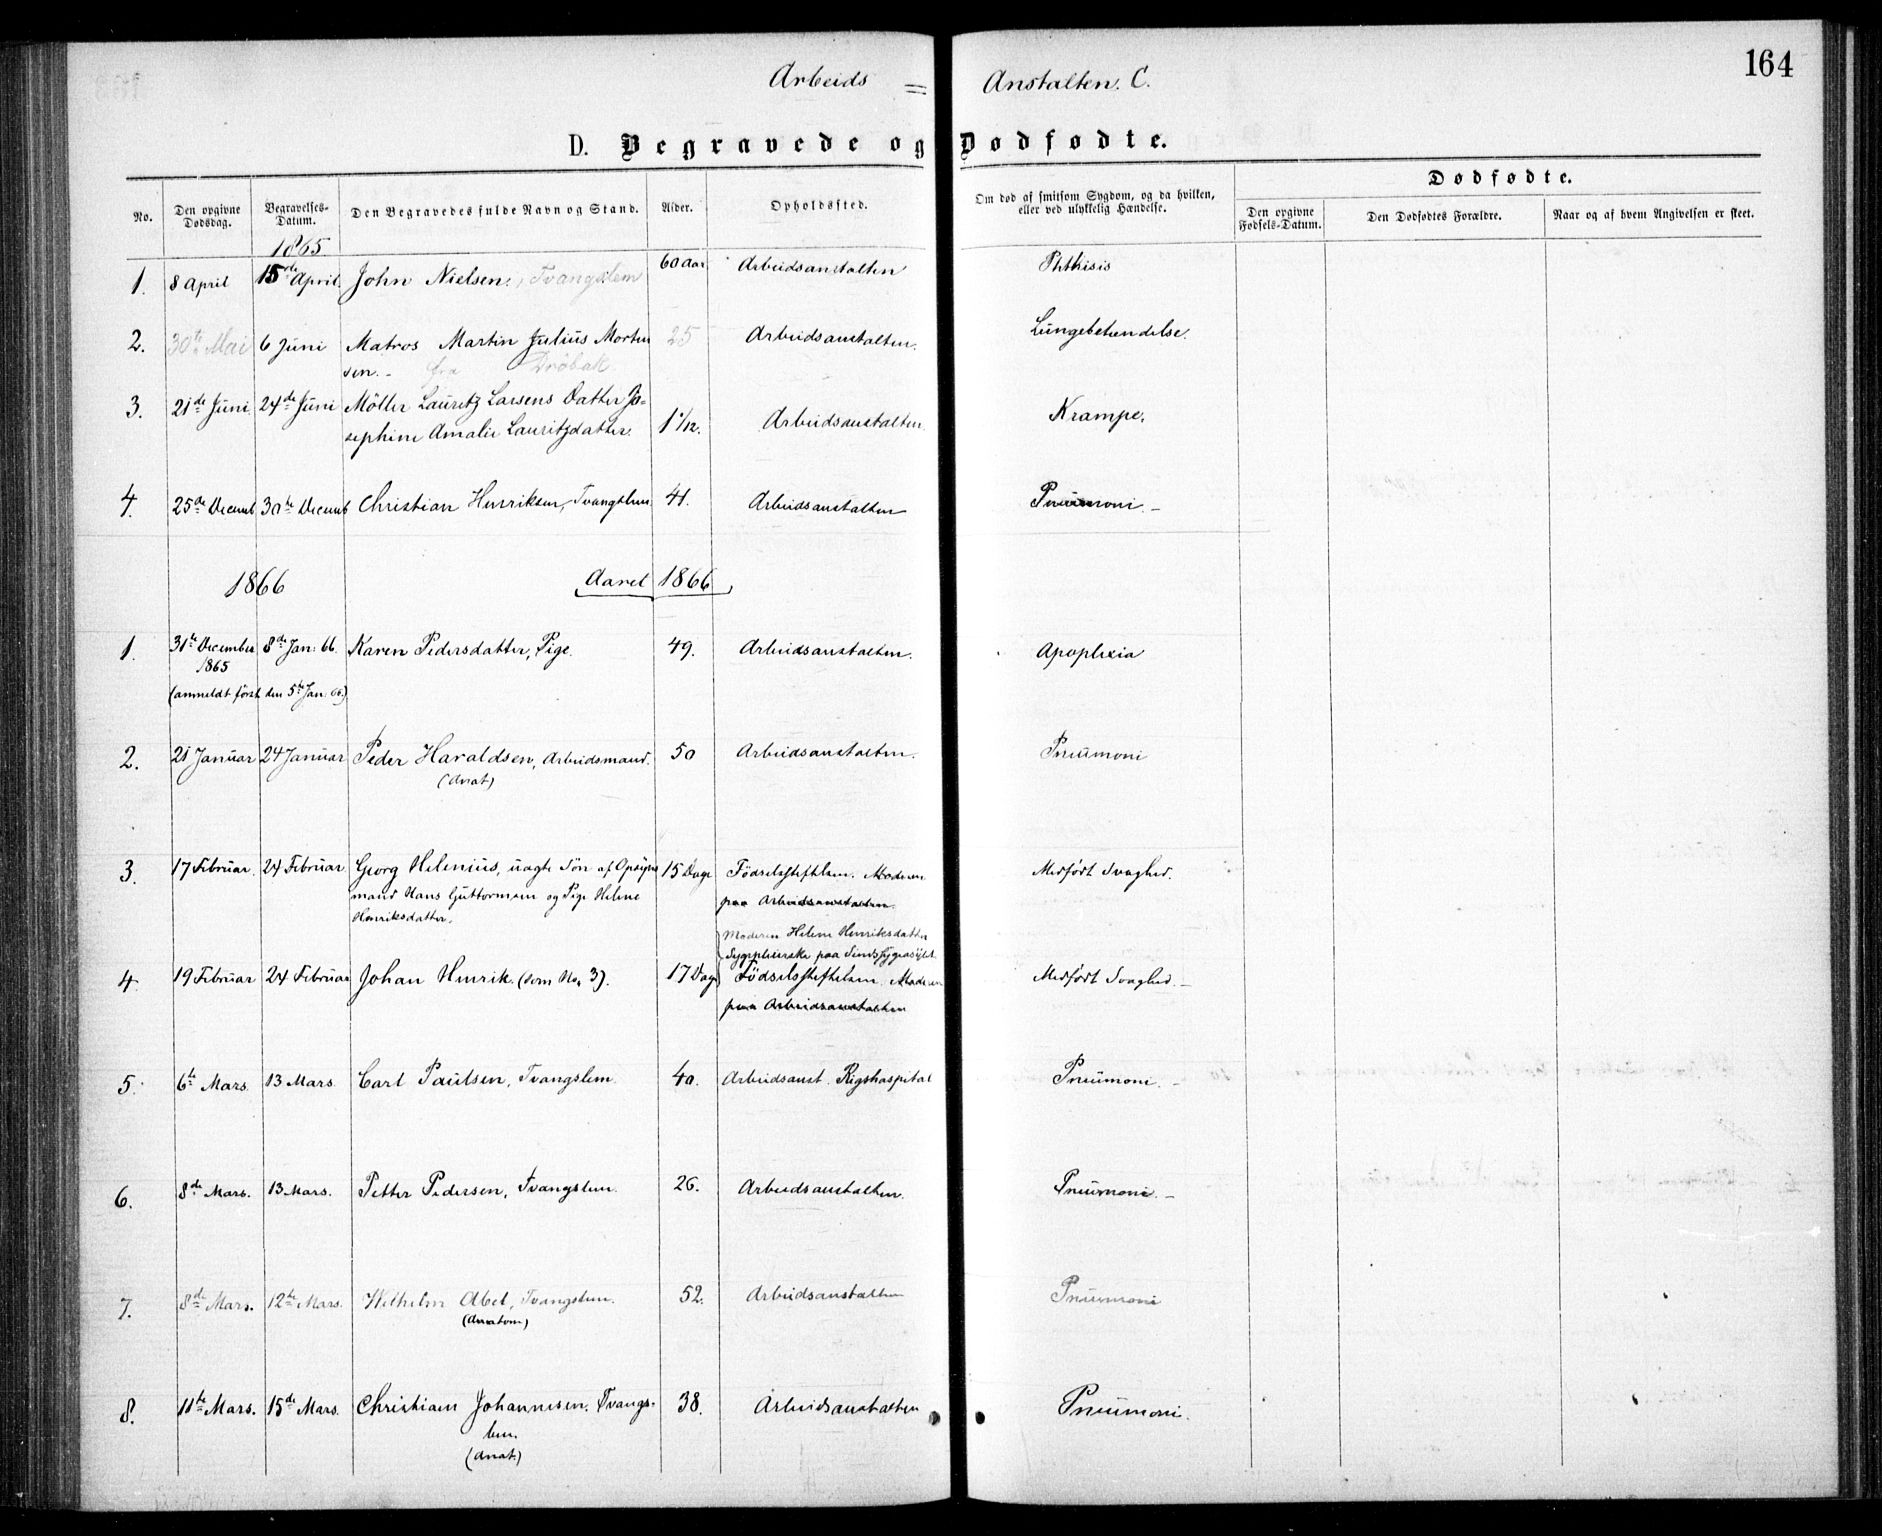 164
Arbeids = Anstalten. C.
D. Begravede og Dødfødte.
No. Den opgivne Dødsdag. Begravelses-Datum. Den Begravedes fulde Navn og Stand. Alder. Opholdssted. Om død af smitsom Sygdom, og da hvilken, eller ved ulykkelig Hændelse. Dødfødte.
Den opgivne Fødsels-Datum. Den Dødfødtes Forældre. Naar og af hvem Angivelsen er skeet.
1865.
1. 8 April 15de April. John Nielsen, Tvangslem 60 Aar Arbeidsanstalten Phthisis
2. 30te Mai 6 Juni Matros Martin Julius Morten 25 Arbeidsanstalten. Lungebetændelse.
sen. - fra Drøbak
3. 21de Juni 24de Juni Möller Lauritz Larsens Datter Jo=
sephine Amalie Lauritzdatter. 1 1/12. Arbeidsanstalten. Krampe.
4. 25de Decemb 30te Decemb Christian Henriksen, Tvangslem 41. Arbeidsanstalten Pneumoni. -
1866 Aaret 1866
1. 31te December 8de Jan: 66. Karen Pedersdatter, Pige. 49. Arbeidsanstalten. Apoplexia
1865
(anmeldt först den 5te Jan: 66.)
2. 21 Januar 24 Januar Peder Haraldsen, Arbeidsmand. 50 Arbeidsanstalten. Pneumoni
(Anat)
3. 17 Februar. 24 Februar Georg Helenius, uægte Sön af Opsyns 15 Dage Födselsstiftelsen. Moderen Medfödt Svaghed.
mand Hans Guttormsen og Pige Helene paa Arbeidsanstalten.
Henriksdatter.
Moderen Helene Henriksdatter
Sygepleierske paa Sindssygeasylet
4. 19 Februar 24 Februar Johan Henrik. (som No. 3). 17 Dage Födselsstiftelsen. Moderen Medfödt Svaghed. -
paa Arbeidsanstalten
5. 6te Mars. 13 Mars. Carl Paulsen, Tvangslem. 40. Arbeidsanst. Rigshospital Pneumoni. -
6. 8de Mars. 13 Mars. Petter Pedersen, Tvangslem. 26. Arbeidsanstalten. Pneumoni. -
7. 8de Mars. 12te Mars. Wilhelm Abel, Tvangslem. 52. Arbeidsanstalten Pneumoni
(Anatom)
8. 11te Mars. 15de Mars. Christian Johannesen. Tvangs- 38. Arbeidsanstalten Pneumoni.
lem.
(Anat.)